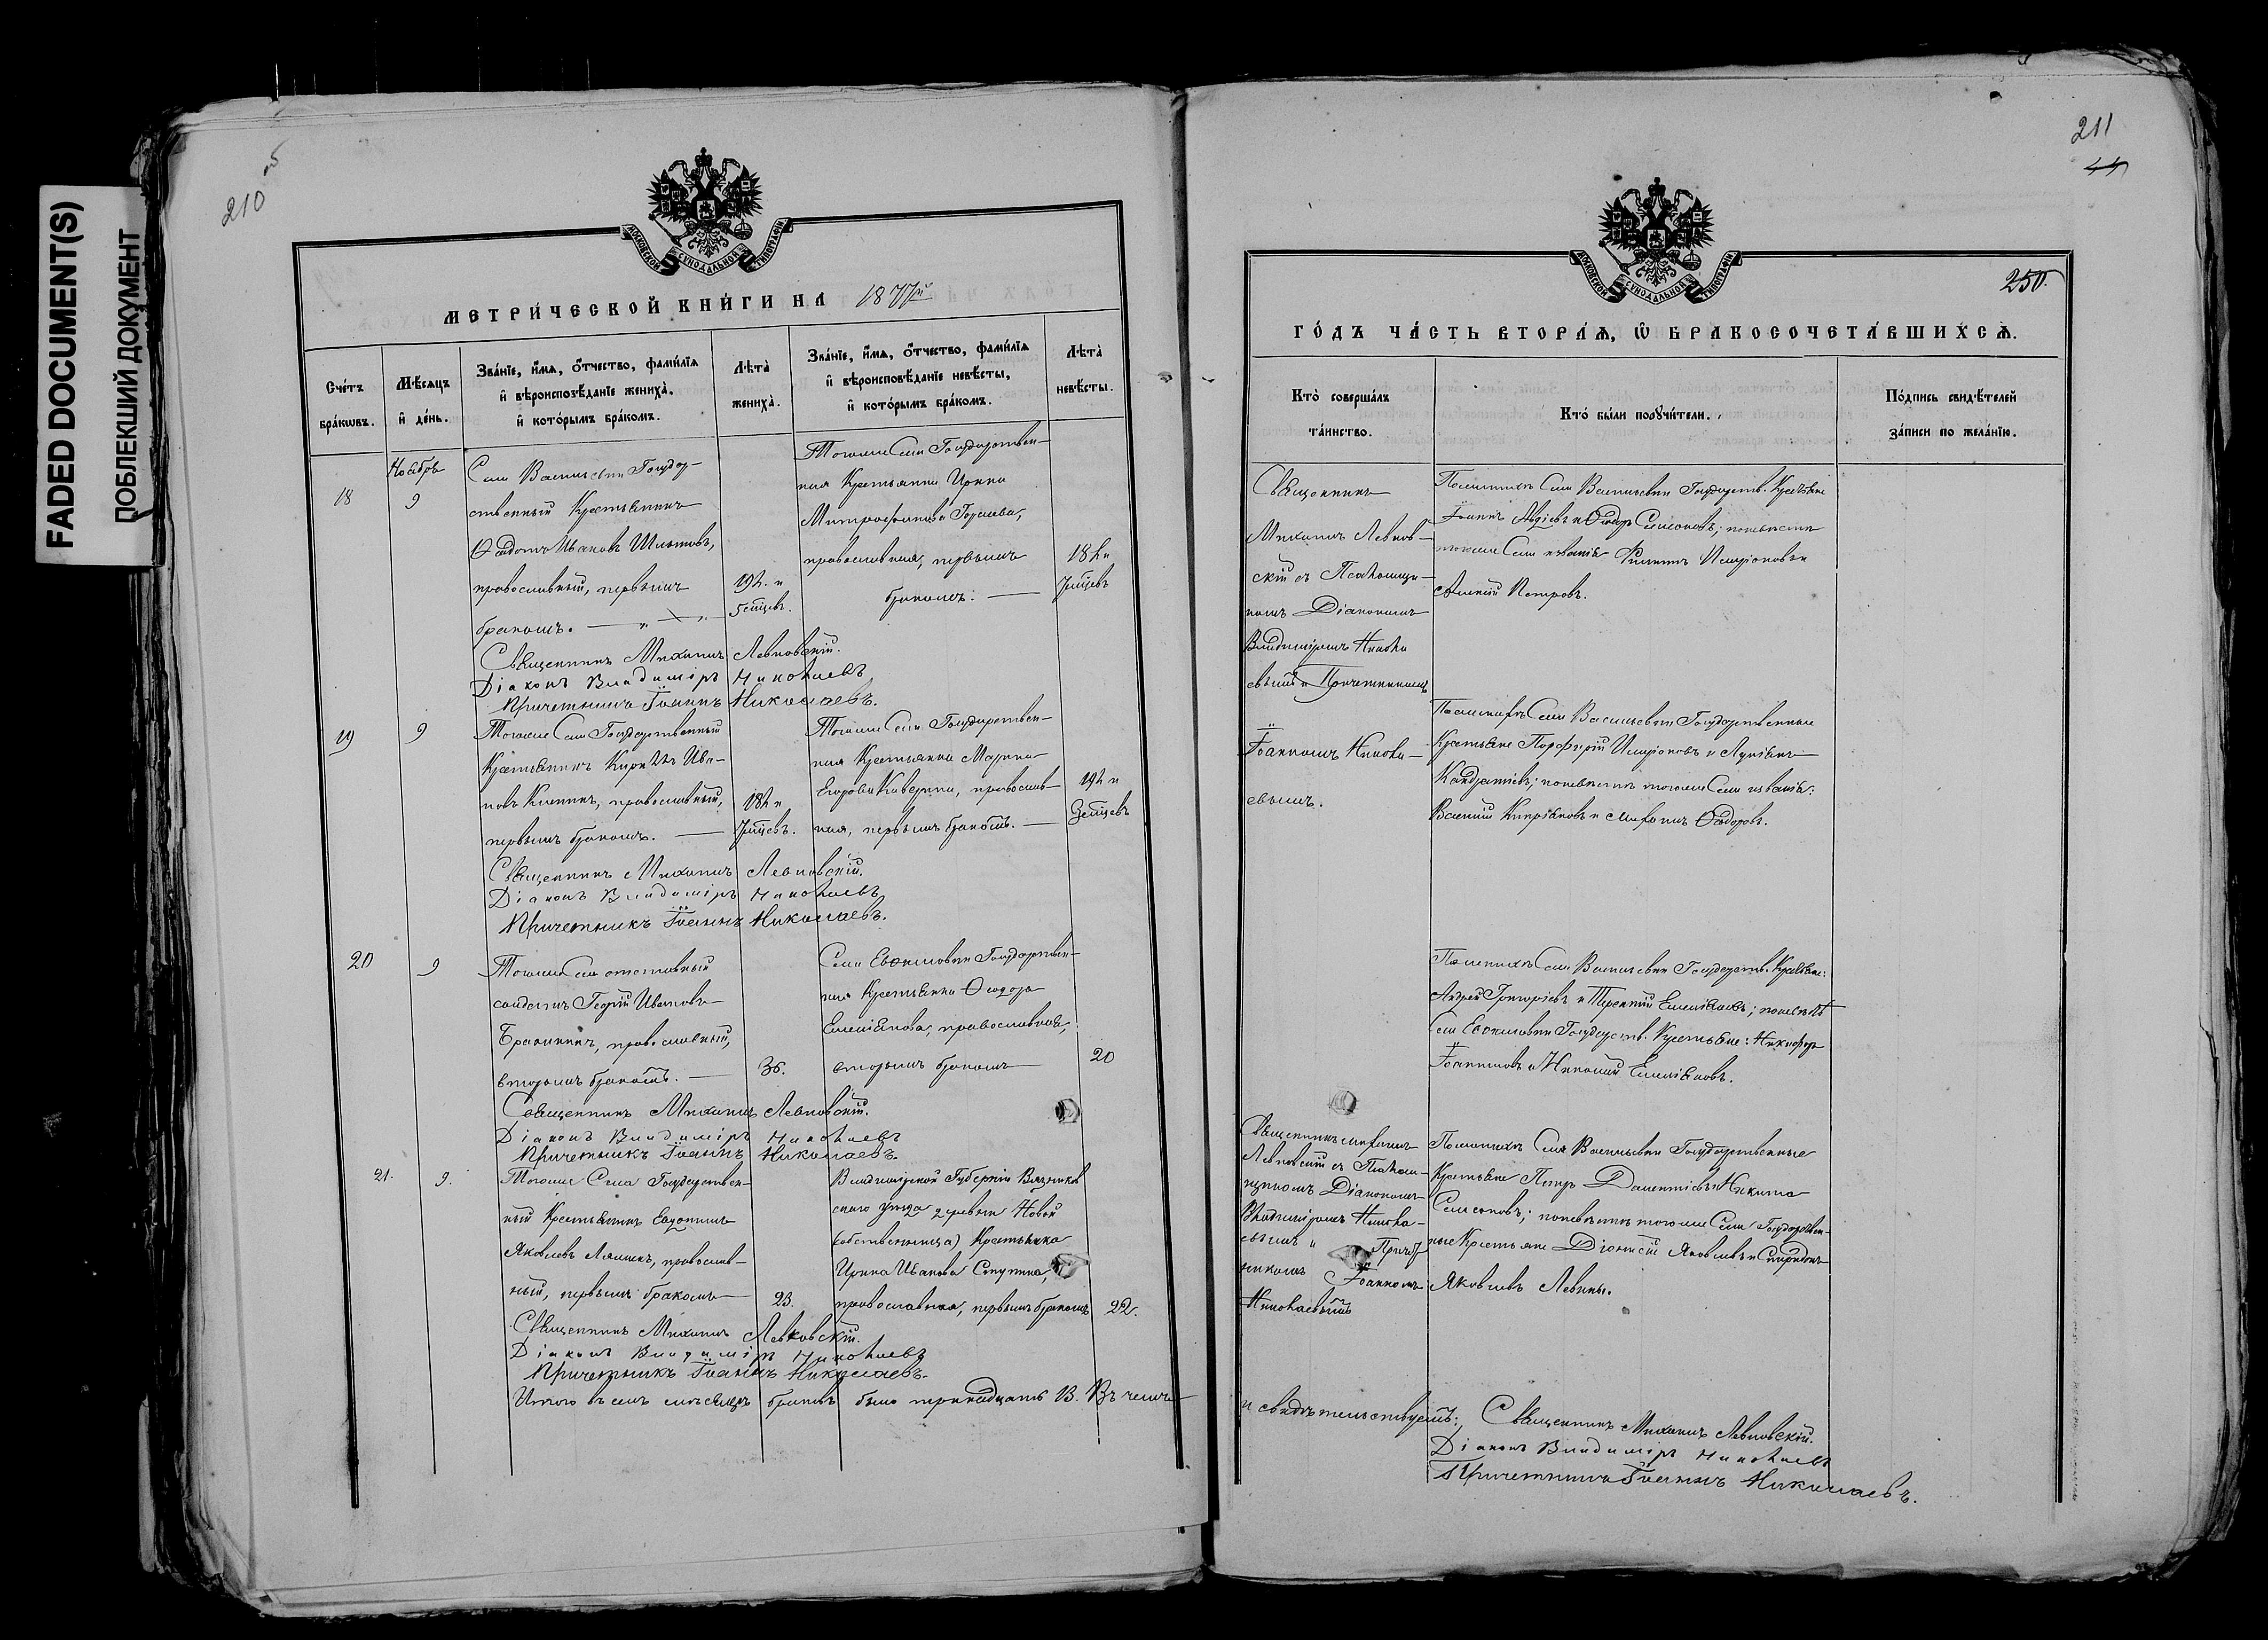 FADED DOCUMENT(S)
ПОБЛЕКШИЙ ДОКУМЕНТ
210 об
МОСКОВСКОЙ СѴНОДАЛЬНОЙ ТИПОГРАФІИ
МЕТРИ́ЧЕСКОЙ КНИ́ГИ НА 1877й
Сче́тъ
бра́кѡвъ.
Мѣ́сѧцъ
и҆ де́нь.
Зва́нїе, и҆́мѧ, ѻ҆́тчество, фами́лїѧ
и҆ вѣроисповѣ́данїе жениха̀,
и҆ кото́рымъ бра́комъ.
Лѣ́та̀
жениха̀.
Зва́нїе, и҆́мѧ, ѻ҆́тчество, фами́лїѧ
и҆ вѣроисповѣ́данїе невѣ́сты,
и҆ кото́рымъ бра́комъ.
Лѣ́та̀
невѣ́сты.
Ноября
18
9
Села Васильевки Государ-
ственный Крестьянинъ
Ѳедотъ Ивановъ
православный, первымъ
бракомъ.
19 л. и
5 мцевъ.
Тогоже Села Государствен-
ная Крестьянка Ирина
Митрофанова
православная, первымъ
бракомъ.
18 л. и
7 мцевъ
Священникъ Михаилъ Левковскій.
Діаконъ Владиміръ Николаевъ
Причетникъ Іоаннъ Николаевъ.
19
9
Тогоже Села Государственный
Крестьянинъ Кириллъ Ива-
новъ православный,
первымъ бракомъ.
18 л. и
7 мцевъ.
Тогоже Села Государствен-
ная Крестьянка Марина
Егорова Каверина, православ-
ная, первымъ бракомъ.
19 л. и
3 мцевъ
Священникъ Михаилъ Левковскій.
Діаконъ Владиміръ Николаевъ
Причетникъ Іоаннъ Николаевъ.
20
9
Тогоже Села отставный
солдатъ Георгій Ивановъ
православный,
вторымъ бракомъ.
36.
Села Государствен-
ная Крестьянка Ѳеодора
Емеліанова, православная,
вторымъ бракомъ
20
Священникъ Михаилъ Левковскій.
Діаконъ Владиміръ Николаевъ
Причетникъ Іоаннъ Николаевъ.
21.
9.
Тогоже Села Государствен-
ный Крестьянинъ Евдокимъ
Яковлевъ православ-
ный, первымъ бракомъ
23.
Владимірской Губерніи Вязников
скаго уезда деревни Новой
(собственница) Крестьянка
Ирина Иванова
православная, первымъ бракомъ
22.
Священникъ Михаилъ Левковскій.
Діаконъ Владиміръ Николаевъ
Причетникъ Іоаннъ Николаевъ.
Итого въ семъ месяцѣ браковъ было тринадцать 13. Въ чемъ
211
44
МОСКОВСКОЙ СѴНОДАЛЬНОЙ ТИПОГРАФІИ
250.
ГО́ДЪ ЧА́СТЬ ВТОРА́Ѧ, Ѽ БРАКОСОЧЕТА́ВШИХСѦ.
Кто̀ соверша́лъ
та́инство.
Кто́ бы́ли порꙋчи́тели.
По́дпись свидѣ́телей
за́писи по жела́нїю.
Священникъ
Михаилъ Левков-
скій съ Псаломщи-
комъ Діакономъ
Владиміромъ Никола
евымъ и Причетникомъ
Іоанномъ Никола-
евымъ.
По женихѣ Села Васильевки Государств. Крестьяне
Іоаннъ Авдіевъ и Ѳедоръ Симеоновъ; по невѣстѣ
тогоже Села званія Филиппъ Иларіоновъ и
Алексій Петровъ.
По женихѣ Села Васильевки Государственные
Крестьяне Порфирій Иларіоновъ и Лукіанъ
Кондратіевъ; по невѣстѣ тогоже Села и званія:
Василій Кипріановъ и Михаилъ Ѳедоровъ.
По женихѣ Села Васильевки Государств. Крестьяне:
Андрей Григоріевъ и Терентій Емеліановъ; по невѣстѣ
Села Государств. Крестьяне: Никифоръ
Іоанновъ и Николай Емеліановъ.
Священникъ Михаилъ
Левковскій съ Псалом-
щикомъ Діакономъ
Владиміромъ Никола-
евымъ и Причет
никомъ Іоанномъ
Николаевымъ
По женихѣ Села Васильевки Государственные
Крестьяне Петръ Дометіевъ и Никита
Симеоновъ; по невѣстѣ тогоже Села Государствен-
ные Крестьяне Діонисій Яковлевъ и Спиридонъ
Яковлевъ Левины.
и свидѣтельствуемъ: Священникъ Михаилъ Левковскій.
Діаконъ Владиміръ Николаевъ
Причетникъ Іоаннъ Николаевъ.